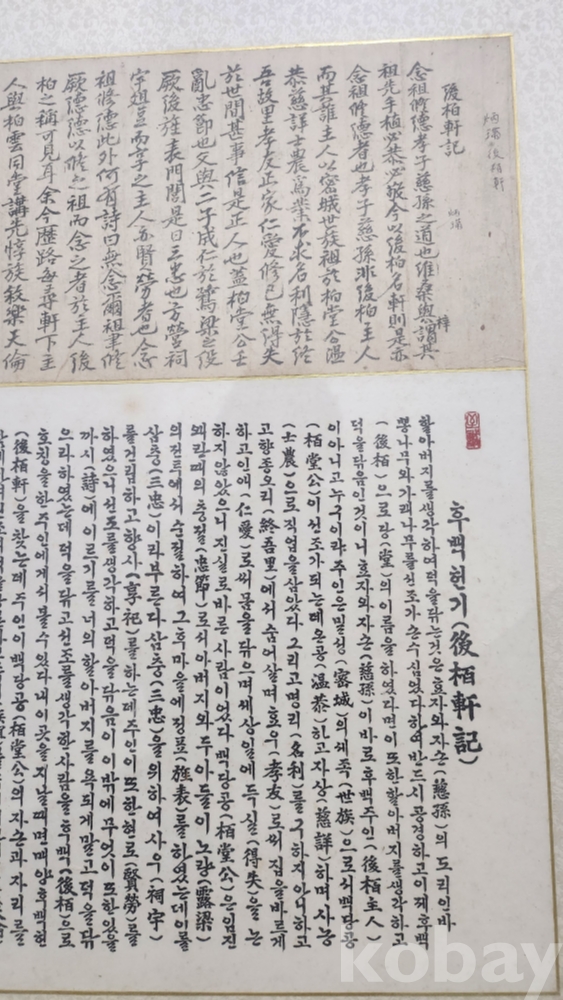 後栢軒記
念祖脩德孝子慈孫之道也維桑與梓謂其
祖先手植必恭必敬今以後栢名軒則是亦
念祖脩德者也孝子慈孫非後栢主人
而其誰主人以密城世族祖於栢堂公溫
恭慈詳士農爲業不求名利隱於終
吾故里孝友正家仁愛修己無得失
於世間甚事信是正人也蓋栢堂公壬
亂忠節也父與二子成仁於鷺梁之役
厥後旌表門閭是曰三忠也方營祠
宇俎豆而享之主人亦賢勞者也念
祖修德此外何有詩曰無念爾祖聿修
厥德德以修之祖而念之者於主人後
栢之稱可見耳余今歷路每尋軒下主
人與栢雲同堂講先惇族敍樂天倫
후백헌기(後栢軒記)
할아버지를생각하여덕을닦는것은효자와자손(慈孫)의도리인바
뽕나무와가래나무를선조가손수심었다하여반드시공경하고이제후백
(後栢)으로당(堂)의이름을하였다면이또한할아버지를생각하고
덕을닦음인것이니효자와자손(慈孫)이바로후백주인(後栢主人)
이아니고누구이랴주인은밀성(密城)의세족(世族)으로서백당공
(栢堂公)이선조가되는데온공(温恭)하고자상(慈詳)하며사농
(士農)으로직업을삼았다그리고명리(名利)를구하지아니하고
고향종오리(終吾里)에서숨어살며효우(孝友)로써집을바르게
하고인애(仁愛)로써몸을닦으며세상일에득실(得失)을논
하지않았으니진실로바른사람이었다백당공(栢堂公)은임진
왜란때의충절(忠節)로서아버지와두아들이노량(露梁)
의전투에서순절하여그후마을에정표(旌表)를하였는데이를
삼충(三忠)이라부른다삼충(三忠)을위하여사우(祠宇)
를건립하고향사(享祀)를하는데주인이또한현로(賢勞)를
하였으니선조를생각하고덕을닦음이이밖에무엇이또한있을
까시(詩)에이르기를너의할아버지를욕되게말고덕을닦
으라하였는데덕을닦고선조를생각한사람을후백(後栢)으로
호칭을한주인에게서볼수있다내이곳을지날때면매양후백헌
(後栢軒)을찾는데주인이백당공(栢堂公)의자손과자리를
kobay